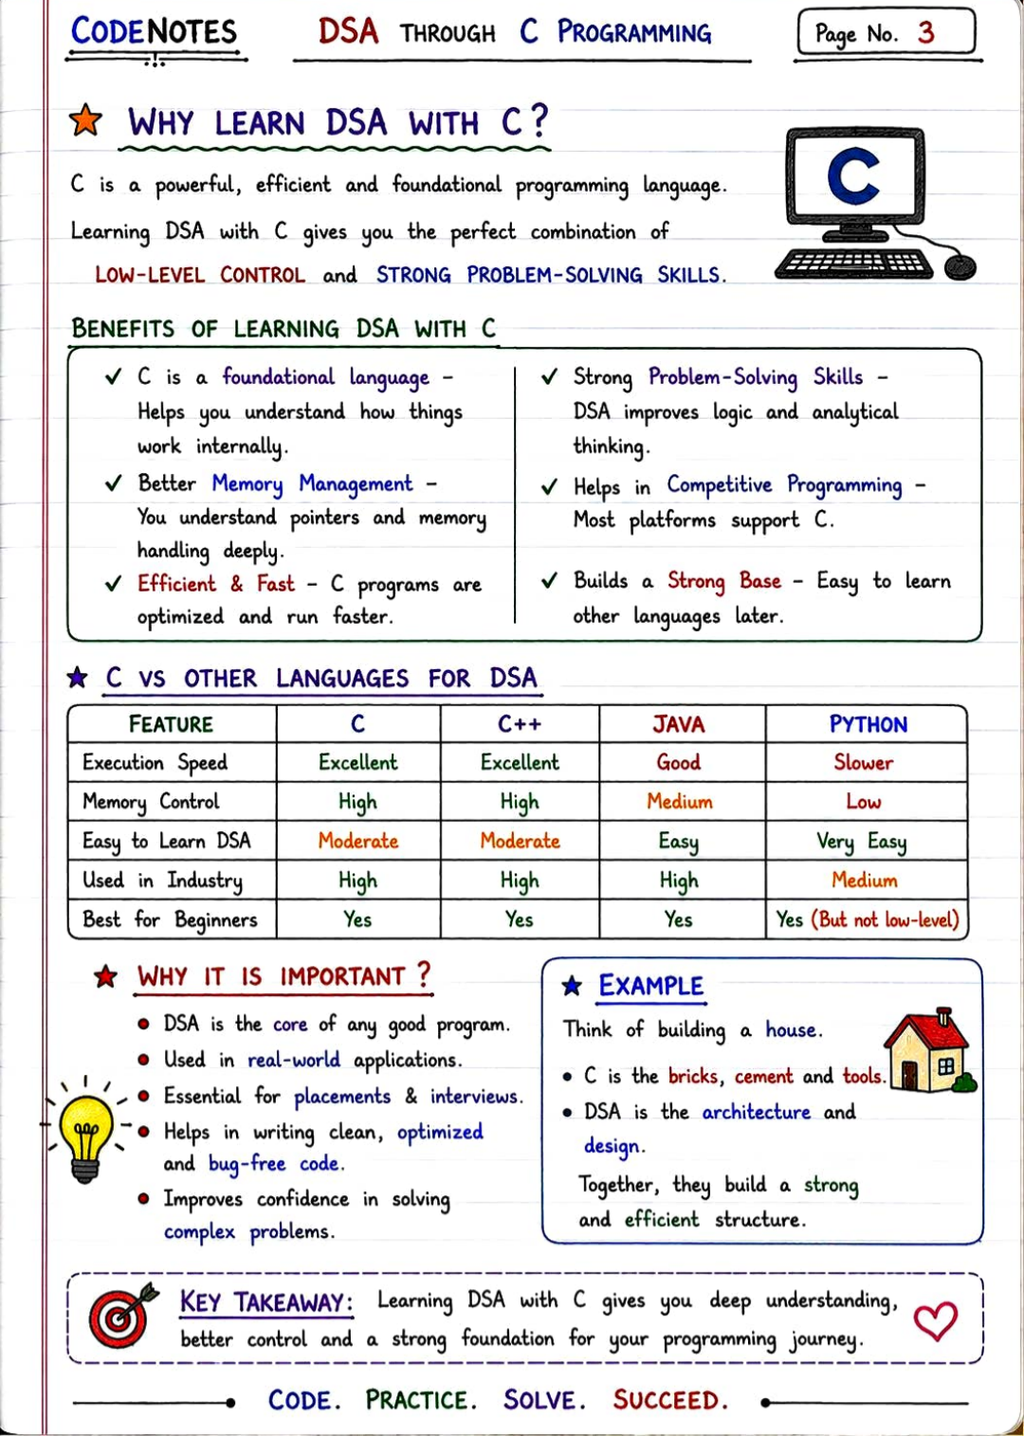 CODENOTES
DSA THROUGH C PROGRAMMING
Page No. 3
WHY LEARN DSA WITH C?
C is a powerful, efficient and foundational programming language.
Learning DSA with C gives you the perfect combination of
LOW-LEVEL CONTROL and STRONG PROBLEM-SOLVING SKILLS.
C
BENEFITS OF LEARNING DSA WITH C
✓ C is a foundational language –
Helps you understand how things
work internally.
✓ Better Memory Management –
You understand pointers and memory
handling deeply.
✓ Efficient & Fast – C programs are
optimized and run faster.
✓ Strong Problem-Solving Skills –
DSA improves logic and analytical
thinking.
✓ Helps in Competitive Programming –
Most platforms support C.
✓ Builds a Strong Base – Easy to learn
other languages later.
C VS OTHER LANGUAGES FOR DSA
FEATURE C C++ JAVA PYTHON
Execution Speed Excellent Excellent Good Slower
Memory Control High High Medium Low
Easy to Learn DSA Moderate Moderate Easy Very Easy
Used in Industry High High High Medium
Best for Beginners Yes Yes Yes Yes (But not low-level)
WHY IT IS IMPORTANT ?
• DSA is the core of any good program.
• Used in real-world applications.
• Essential for placements & interviews.
• Helps in writing clean, optimized
and bug-free code.
• Improves confidence in solving
complex problems.
EXAMPLE
Think of building a house.
• C is the bricks, cement and tools.
• DSA is the architecture and
design.
Together, they build a strong
and efficient structure.
KEY TAKEAWAY: Learning DSA with C gives you deep understanding,
better control and a strong foundation for your programming journey.
CODE. PRACTICE. SOLVE. SUCCEED.